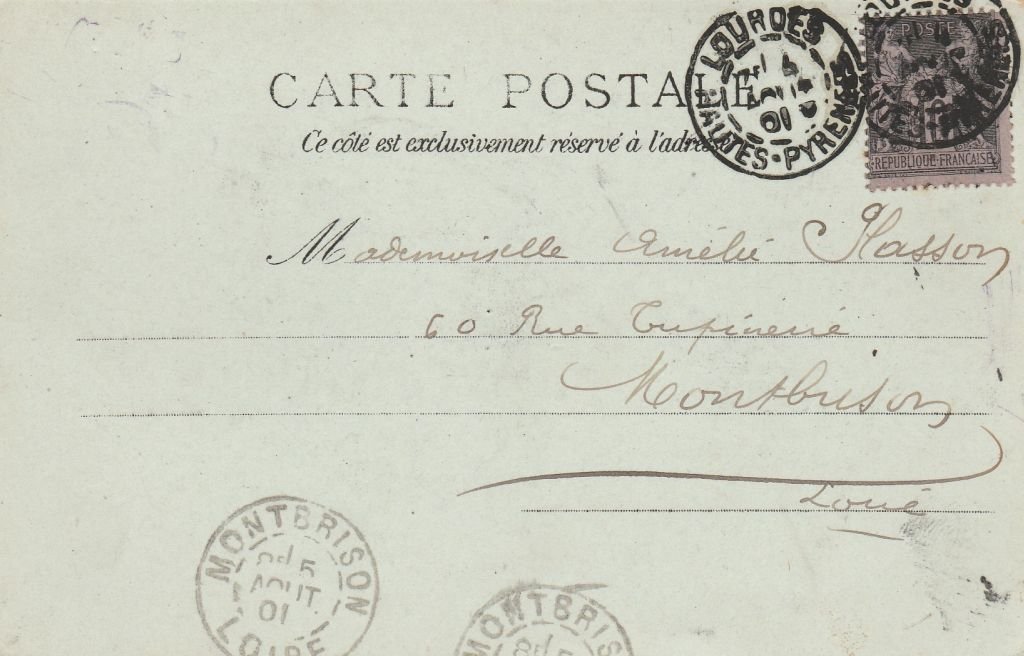 CARTE POSTALE
Ce côté est exclusivement réservé à l'adresse
LOURDES
AOUT
01
HAUTES-PYRENEES
POSTE
REPUBLIQUE FRANCAISE
Mademoiselle Amélie Plasson
60 Rue Tupinerie
Montbrison
Loire
MONTBRISON
5
AOUT
01
LOIRE
MONTBRIS